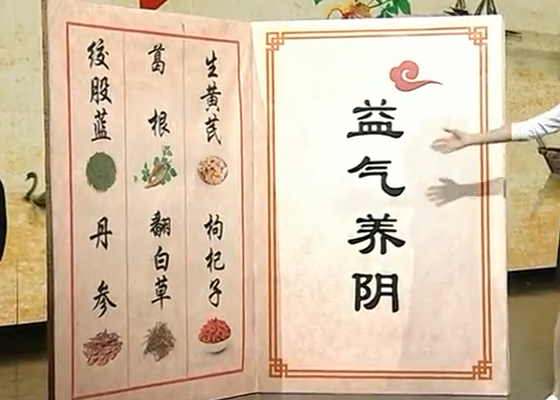 益气养阴
生黄芪
枸杞子
葛根
翻白草
绞股蓝
丹参